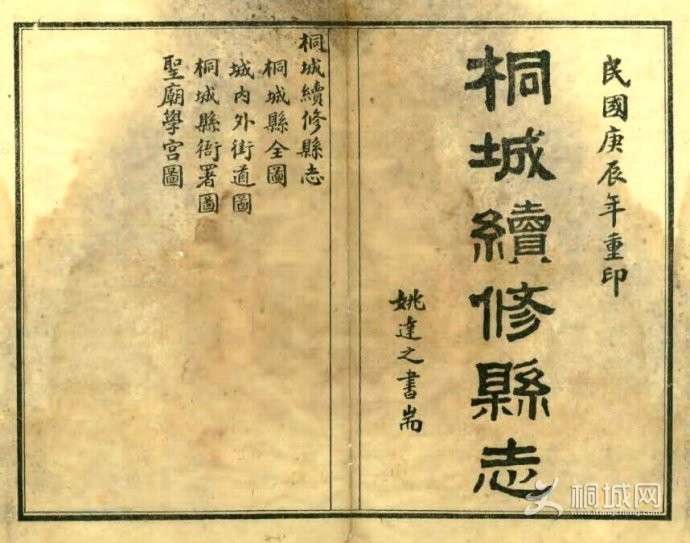 民國庚辰年重印
桐城續修縣志
姚達之書耑
桐城續修縣志
桐城縣全圖
城內外街道圖
桐城縣衙署圖
聖廟學宮圖
桐城网
www.itongcheng.com